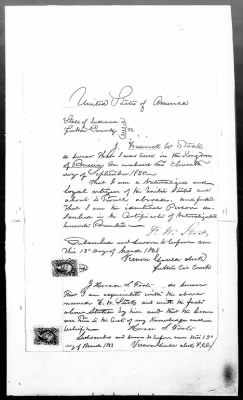 United States of America
State of Indiana
Fulton County } ss
I, Frederick W. Stock
do swear that I was born in the Kingdom
of Prussia on or about the Eleventh
day of September 1820.
That I am a Naturalized and
Loyal citizen of the United States and
about to travel abroad, and further
that I am the identical Person de-
scribed in the Certificate of Naturalization
herewith Presented
F. W. Stock
Subscribed and sworn to before me
this 13th day of March 186
Vernon Clerk
Fulton Co. Court
I Horace do swear
that I am acquainted with the above
named F. W. Stock and with the facts
above stated by him and that the same
are True to the best of my Knowledge and
belief.
Horace
Subscribed and sworn to before me this 13th
day of March 186
Vernon Clerk